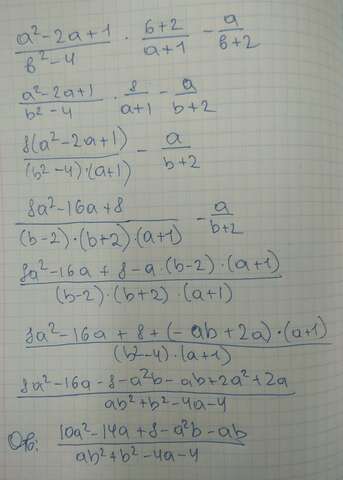 a²-2a+1/в²-4 · 6+2/a+1 - a/в+2
a²-2a+1/b²-4 · 8/a+1 - a/b+2
8(a²-2a+1)/(b²-4)·(a+1) - a/b+2
8a²-16a+8/(b-2)·(b+2)·(a+1) - a/b+2
8a²-16a+8-a·(b-2)·(a+1)/(b-2)·(b+2)·(a+1)
8a²-16a+8+(-ab+2a)·(a+1)/(b²-4)·(a+1)
8a²-16a-8-a²b-ab+2a²+2a/ab²+b²-4a-4
Отв: 10a²-14a+8-a²b-ab/ab²+b²-4a-4